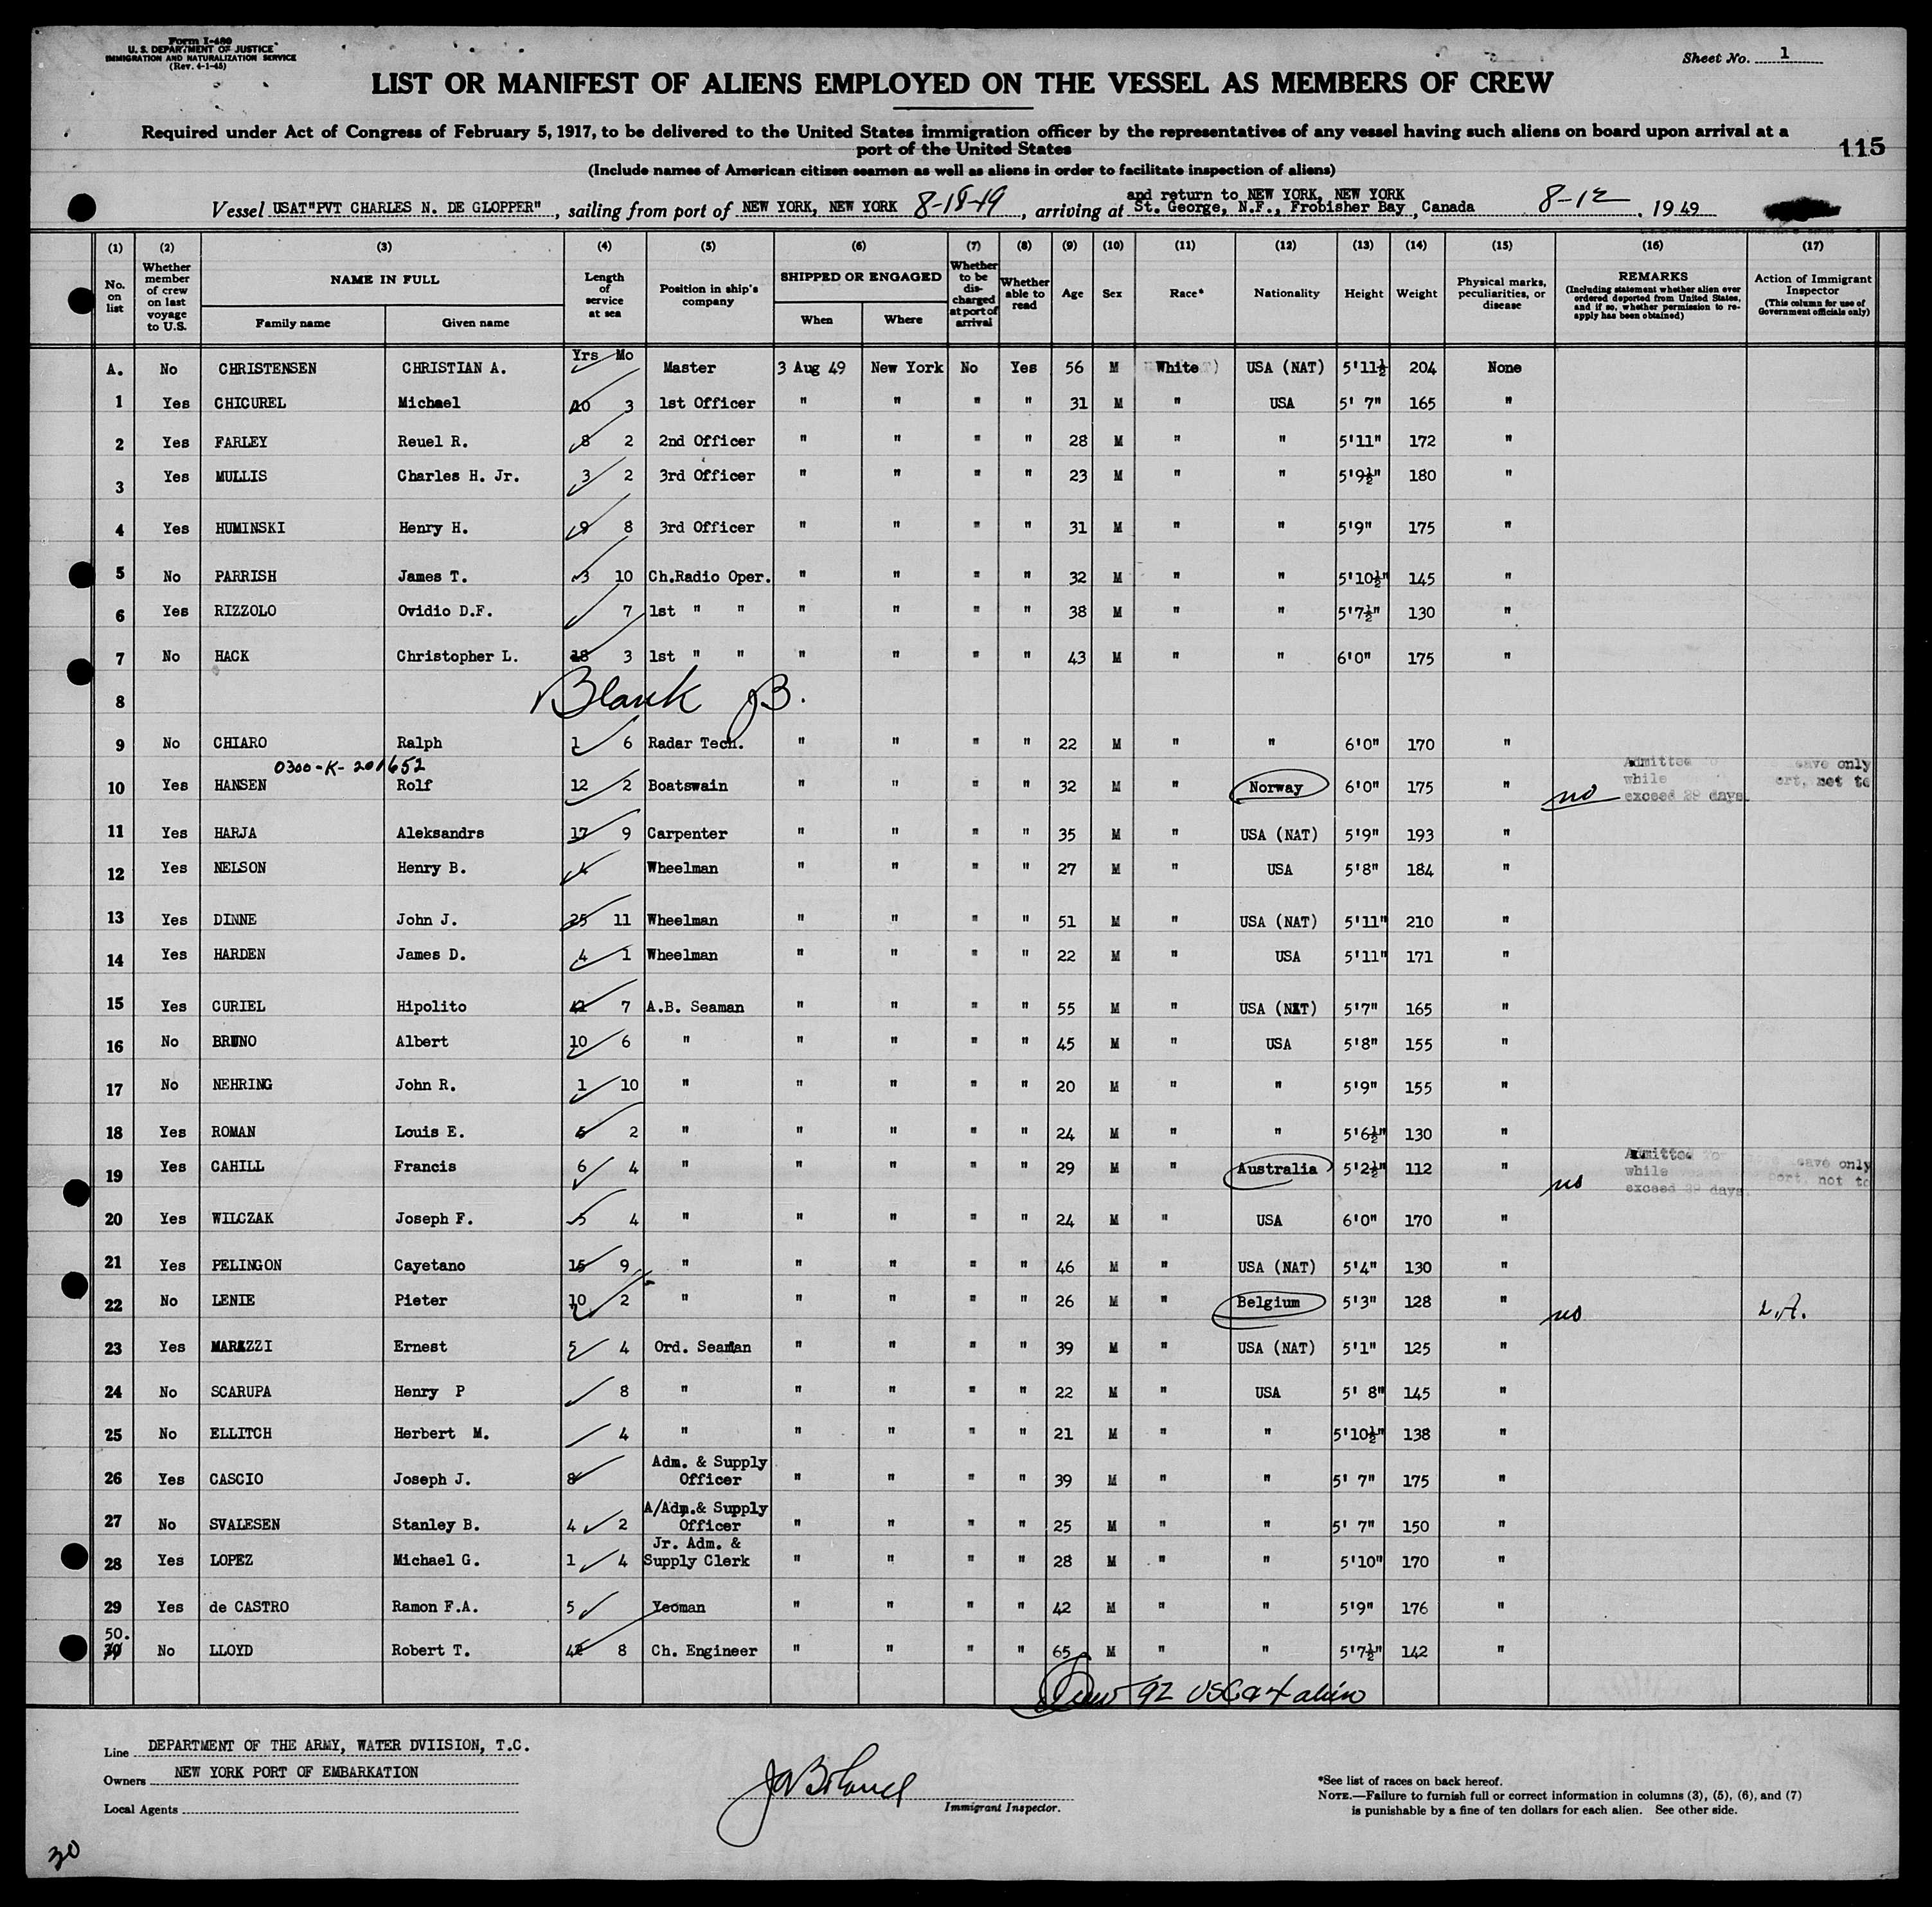 Form I-480
U. S. DEPARTMENT OF JUSTICE
IMMIGRATION AND NATURALIZATION SERVICE
(Rev. 4-1-45)
Sheet No. 1
LIST OR MANIFEST OF ALIENS EMPLOYED ON THE VESSEL AS MEMBERS OF CREW
Required under Act of Congress of February 5, 1917, to be delivered to the United States immigration officer by the representatives of any vessel having such aliens on board upon arrival at a
port of the United States
115
(Include names of American citizen seamen as well as aliens in order to facilitate inspection of aliens)
and return to NEW YORK, NEW YORK
Vessel USAT"PVT CHARLES N. DE GLOPPER", sailing from port of NEW YORK, NEW YORK 8-18-49, arriving at St. George, N.F., Frobisher Bay, Canada 8-12, 1949
(1) (2) (3) (4) (5) (6) (7) (8) (9) (10) (11) (12) (13) (14) (15) (16) (17)
No. on list
Whether member of crew on last voyage to U.S.
NAME IN FULL
Family name Given name
Length of service at sea
Position in ship's company
SHIPPED OR ENGAGED
When Where
Whether to be discharged at port of arrival
Whether able to read
Age
Sex
Race*
Nationality
Height
Weight
Physical marks, peculiarities, or disease
REMARKS
(Including statement whether alien ever ordered deported from United States, and if so, whether permission to reapply has been obtained)
Action of Immigrant Inspector
(This column for use of Government officials only)
Yrs Mo
A. No CHRISTENSEN CHRISTIAN A. Master 3 Aug 49 New York No Yes 56 M White USA (NAT) 5'11½ 204 None
1 Yes CHICUREL Michael 10 3 1st Officer " " " " 31 M " USA 5' 7" 165 "
2 Yes FARLEY Reuel R. 8 2 2nd Officer " " " " 28 M " " 5'11" 172 "
3 Yes MULLIS Charles H. Jr. 3 2 3rd Officer " " " " 23 M " " 5'9½" 180 "
4 Yes HUMINSKI Henry H. 9 8 3rd Officer " " " " 31 M " " 5'9" 175 "
5 No PARRISH James T. 3 10 Ch.Radio Oper. " " " " 32 M " " 5'10½" 145 "
6 Yes RIZZOLO Ovidio D.F. 7 1st " " " " " " 38 M " " 5'7½" 130 "
7 No HACK Christopher L. 18 3 1st " " " " " " 43 M " " 6'0" 175 "
8 Blank JB.
9 No CHIARO Ralph 1 6 Radar Tech. " " " " 22 M " " 6'0" 170 "
0300-K-201652
10 Yes HANSEN Rolf 12 2 Boatswain " " " " 32 M " Norway 6'0" 175 " no
Admitted leave only
while ort, not to
exceed 29 days
11 Yes HARJA Aleksandrs 17 9 Carpenter " " " " 35 M " USA (NAT) 5'9" 193 "
12 Yes NELSON Henry B. 4 Wheelman " " " " 27 M " USA 5'8" 184 "
13 Yes DINNE John J. 25 11 Wheelman " " " " 51 M " USA (NAT) 5'11" 210 "
14 Yes HARDEN James D. 4 1 Wheelman " " " " 22 M " USA 5'11" 171 "
15 Yes CURIEL Hipolito 7 A.B. Seaman " " " " 55 M " USA (NAT) 5'7" 165 "
16 No BRUNO Albert 10 6 " " " " " 45 M " USA 5'8" 155 "
17 No NEHRING John R. 1 10 " " " " " 20 M " " 5'9" 155 "
18 Yes ROMAN Louis E. 5 2 " " " " " 24 M " " 5'6½" 130 "
19 Yes CAHILL Francis 6 4 " " " " " 29 M " Australia 5'2½" 112 " no
Admitted for leave only
while port, not to
exceed 29 days
20 Yes WILCZAK Joseph F. 5 4 " " " " " 24 M " USA 6'0" 170 "
21 Yes PELINGON Cayetano 15 9 " " " " " 46 M " USA (NAT) 5'4" 130 "
22 No LENIE Pieter 10 2 " " " " " 26 M " Belgium 5'3" 128 " no
23 Yes MARAZZI Ernest 5 4 Ord. Seaman " " " " 39 M " USA (NAT) 5'1" 125 "
24 No SCARUPA Henry P 8 " " " " " 22 M " USA 5' 8" 145 "
25 No ELLITCH Herbert M. 4 " " " " " 21 M " " 5'10½" 138 "
26 Yes CASCIO Joseph J. 8 Adm. & Supply Officer " " " " 39 M " " 5' 7" 175 "
27 No SVALESEN Stanley B. 4 2 A/Adm.& Supply Officer " " " " 25 M " " 5' 7" 150 "
28 Yes LOPEZ Michael G. 1 4 Jr. Adm. & Supply Clerk " " " " 28 M " " 5'10" 170 "
29 Yes de CASTRO Ramon F.A. 5 Yeoman " " " " 42 M " " 5'9" 176 "
50. 30 No LLOYD Robert T. 42 8 Ch. Engineer " " " " 65 M " " 5'7½" 142 "
92 USC
Line DEPARTMENT OF THE ARMY, WATER DVIISION, T.C.
Owners NEW YORK PORT OF EMBARKATION
Local Agents
Immigrant Inspector.
*See list of races on back hereof.
NOTE.—Failure to furnish full or correct information in columns (3), (5), (6), and (7)
is punishable by a fine of ten dollars for each alien. See other side.
30